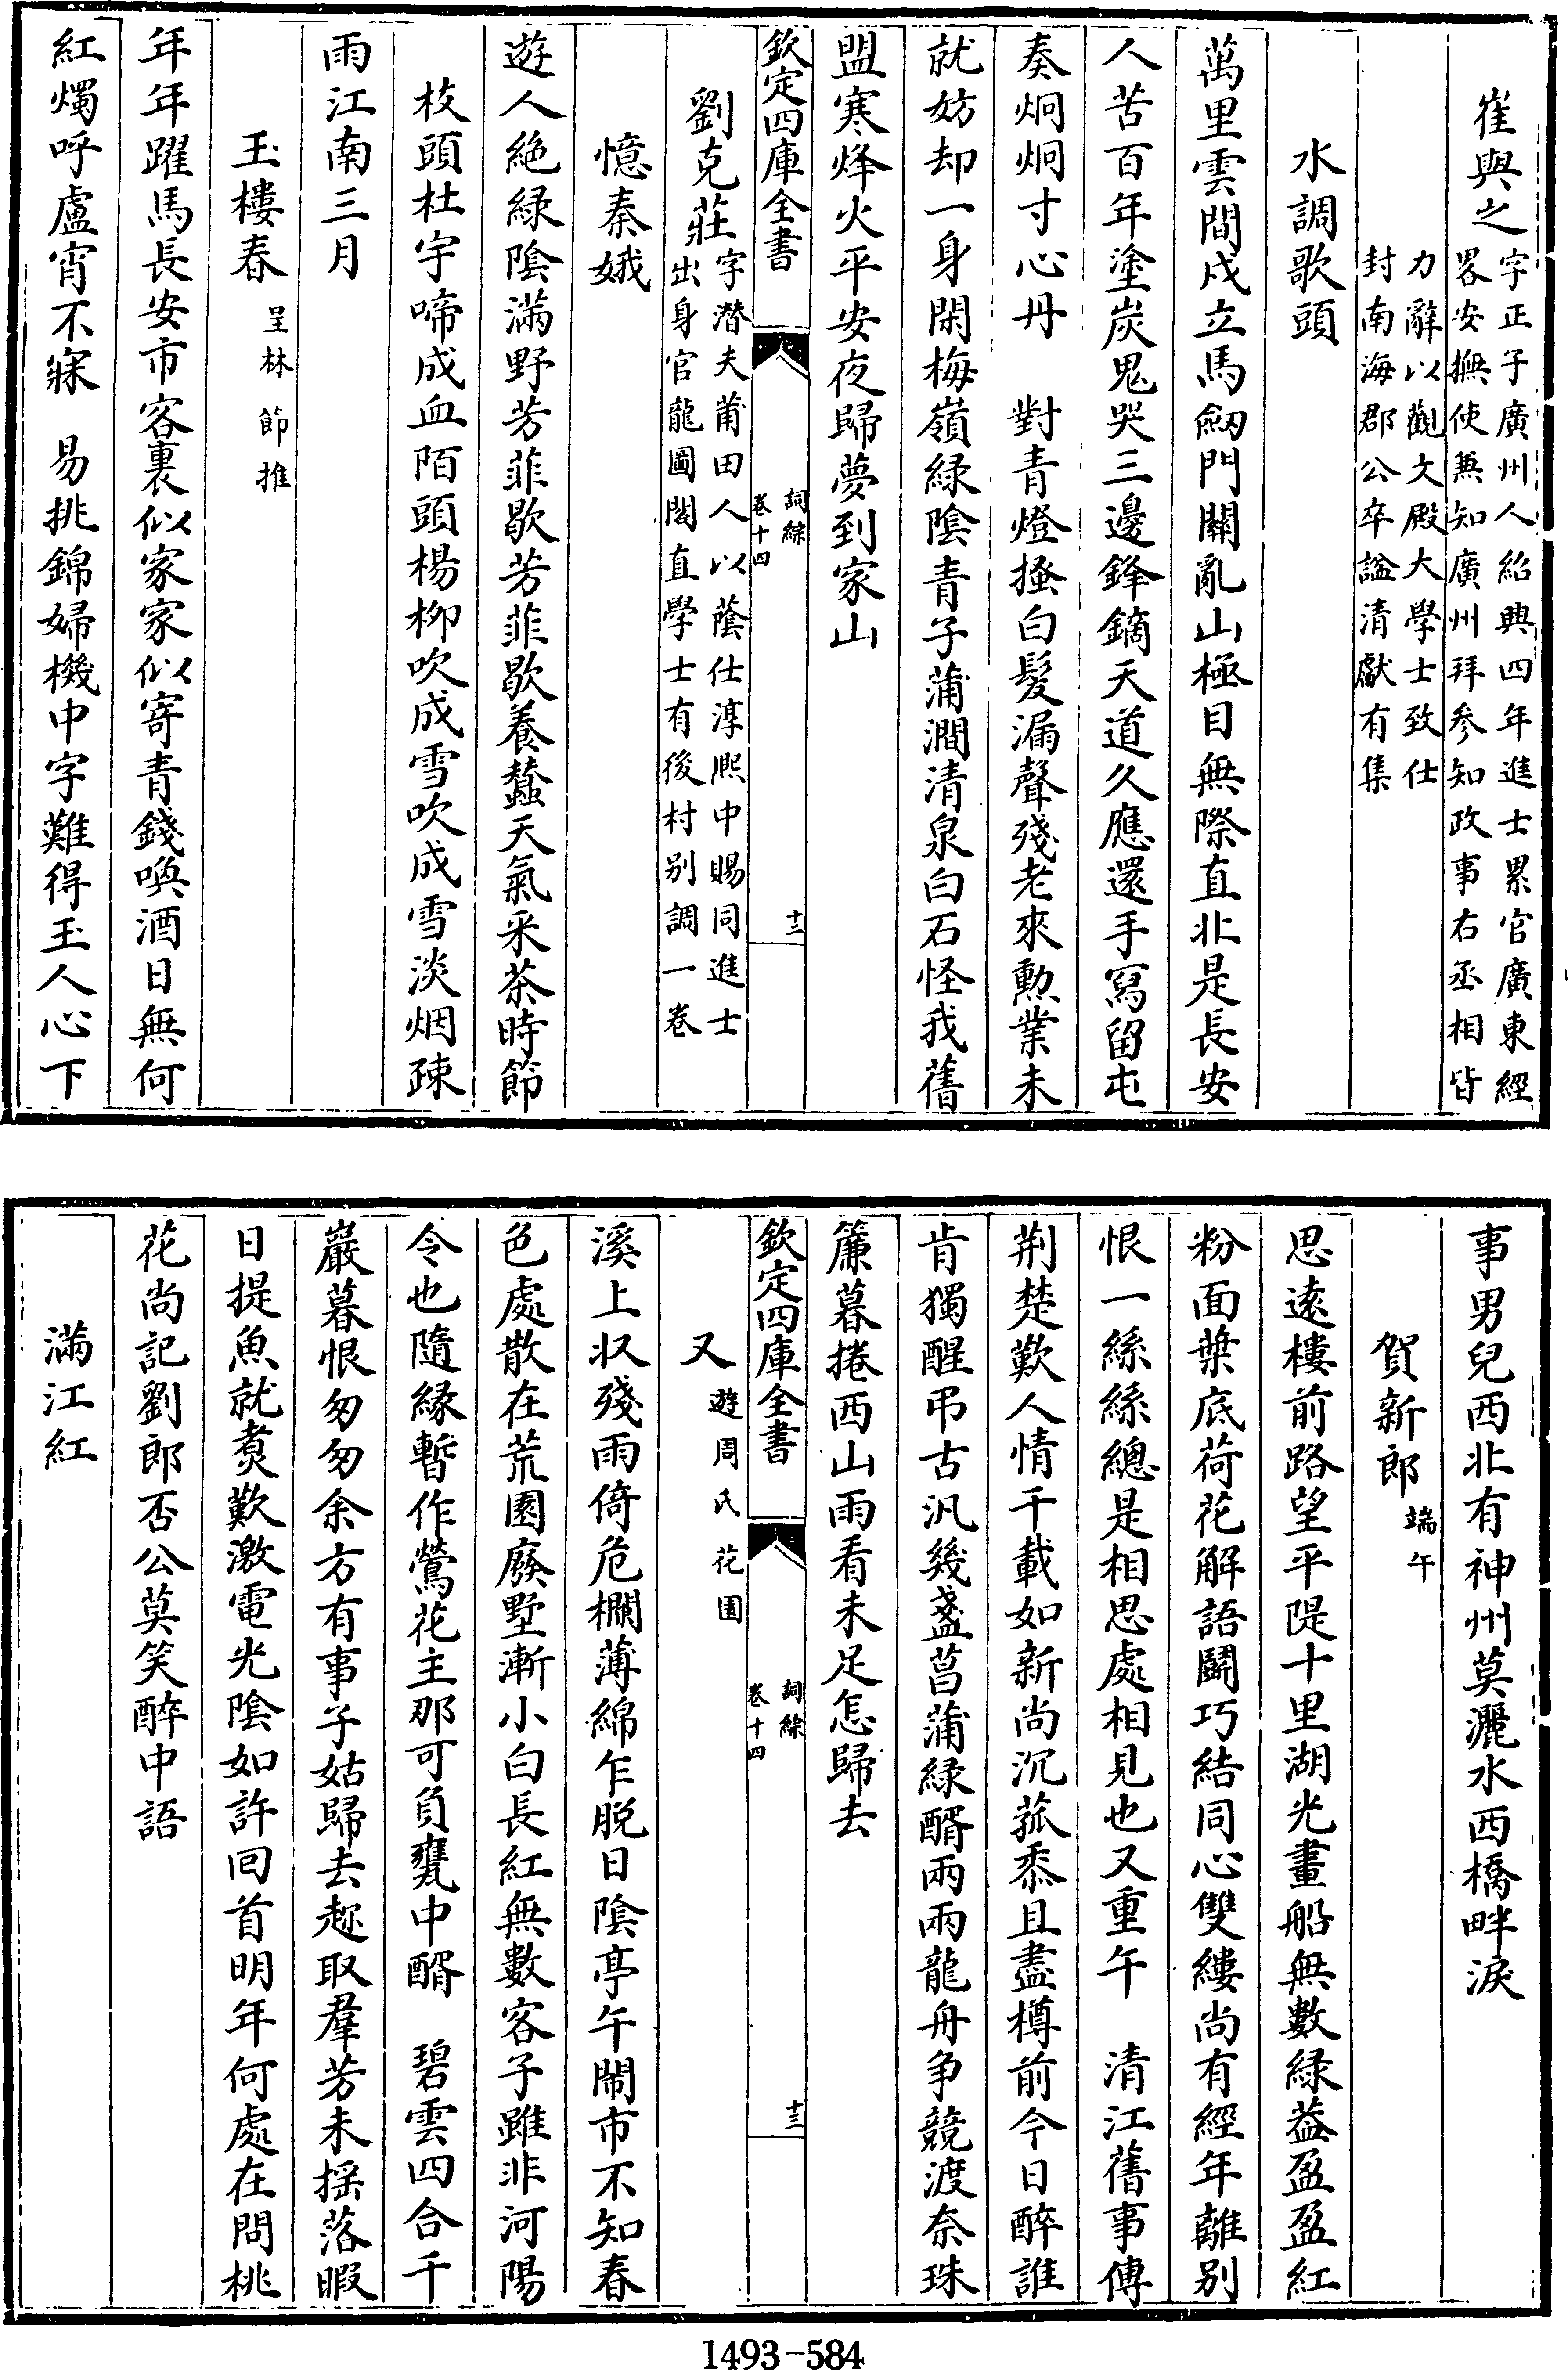 崔與之字正子廣州人紹興四年進士累官廣東經
畧安撫使無知廣州拜参知政事右丞相皆
力辭以觀文殿大學士致仕
封南海郡公卒諡清獻有集
水調歌頭
萬里雲間戍立馬劔門關亂山極目無際直北是長安
人苦百年塗炭鬼哭三邊鋒鏑天道久應還手寫留屯
奏炯炯寸心丹　對青燈搔白髮漏聲殘老來勲業未
就妨却一身閑梅嶺緑陰青子蒲澗清泉白石怪我舊
盟寒烽火平安夜歸夢到家山
欽定四庫全書
詞綜
卷十四
十二
劉克莊字潛夫莆田人以蔭仕淳熈中賜同進士
出身官龍圖閣直學士有後村别調一卷
憶秦娥
遊人絶緑陰滿野芳菲歇芳菲歇養蠶天氣采茶時節
枝頭杜宇啼成血陌頭楊柳吹成雪吹成雪淡烟疎
雨江南三月
玉樓春呈林節推
年年躍馬長安市客裏似家家似寄青錢喚酒日無何
紅燭呼盧宵不寐　易挑錦婦機中字難得玉人心下
事男兒西北有神州莫灑水西橋畔淚
賀新郎端午
思遠樓前路望平隄十里湖光畫船無數緑葢盈盈紅
粉面葉底荷花解語鬬巧結同心雙縷尚有經年離别
恨一絲絲總是相思處相見也又重午　清江舊事傳
荆楚歎人情千載如新尚沉菰黍且盡樽前今日醉誰
肯獨醒弔古汎幾盞菖蒲緑醑兩兩龍舟争競渡奈珠
簾暮捲西山雨看未足怎歸去
欽定四庫全書
詞綜
卷十四
十三
又遊周氏花園
溪上収殘雨倚危欄薄綿乍脱日陰亭午鬧市不知春
色處散在荒園廢墅漸小白長紅無數客子雖非河陽
令也隨緣暫作鶯花主那可負甕中醑　碧雲四合千
巖暮恨匆匆余方有事子姑歸去趂取羣芳未揺落暇
日提魚就煑歎激電光陰如許回首明年何處在問桃
花尚記劉郎否公莫笑醉中語
滿江紅
1493-584